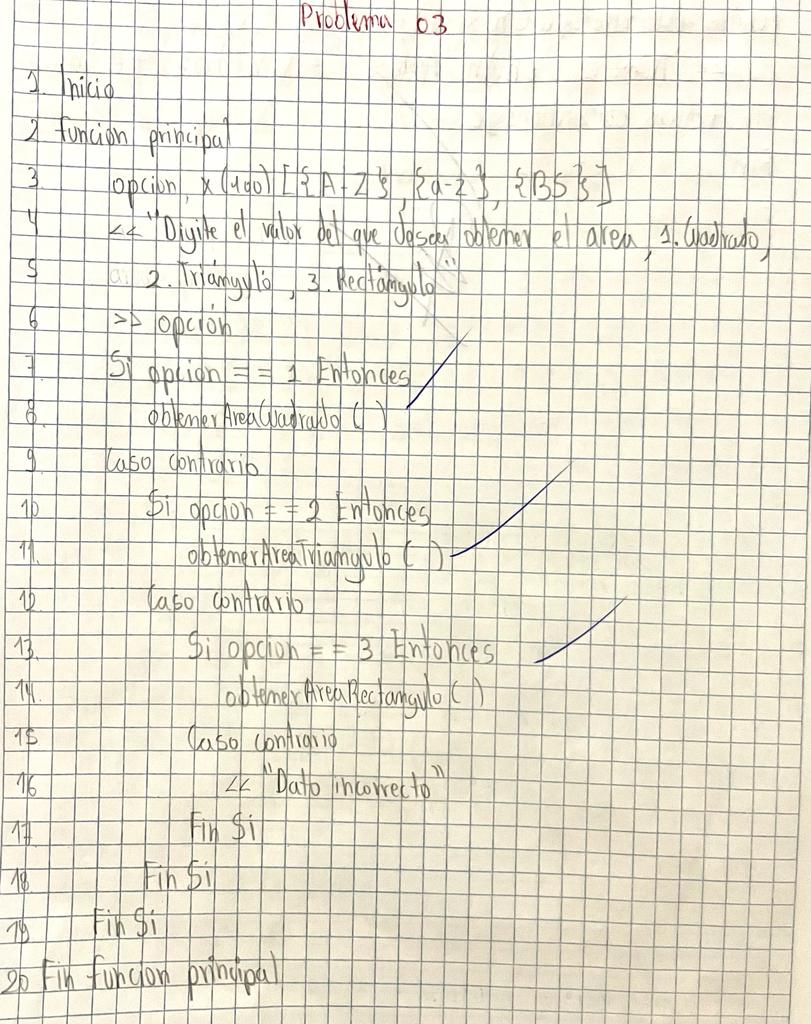 Problema 03
1. Inicio
2 funcion principal
3 opcion, x(100) [{A-Z}, {a-z}, {BS}]
4 << "Digite el valor del que desea obtener el area, 1. Cuadrado,
5 2. Triángulo, 3. Rectángulo"
6 >> opción
7. Si opcion == 1 Entonces
8. obtenerAreaCuadrado ( )
9 Caso contrario
10 Si opcion == 2 Entonces
11. obtenerAreaTriangulo ( )
12 Caso contrario
13. Si opcion == 3 Entonces
14. obtenerAreaRectangulo ( )
15 Caso contrario
16 << "Dato incorrecto"
17 Fin Si
18 Fin Si
19 Fin Si
20 Fin funcion principal